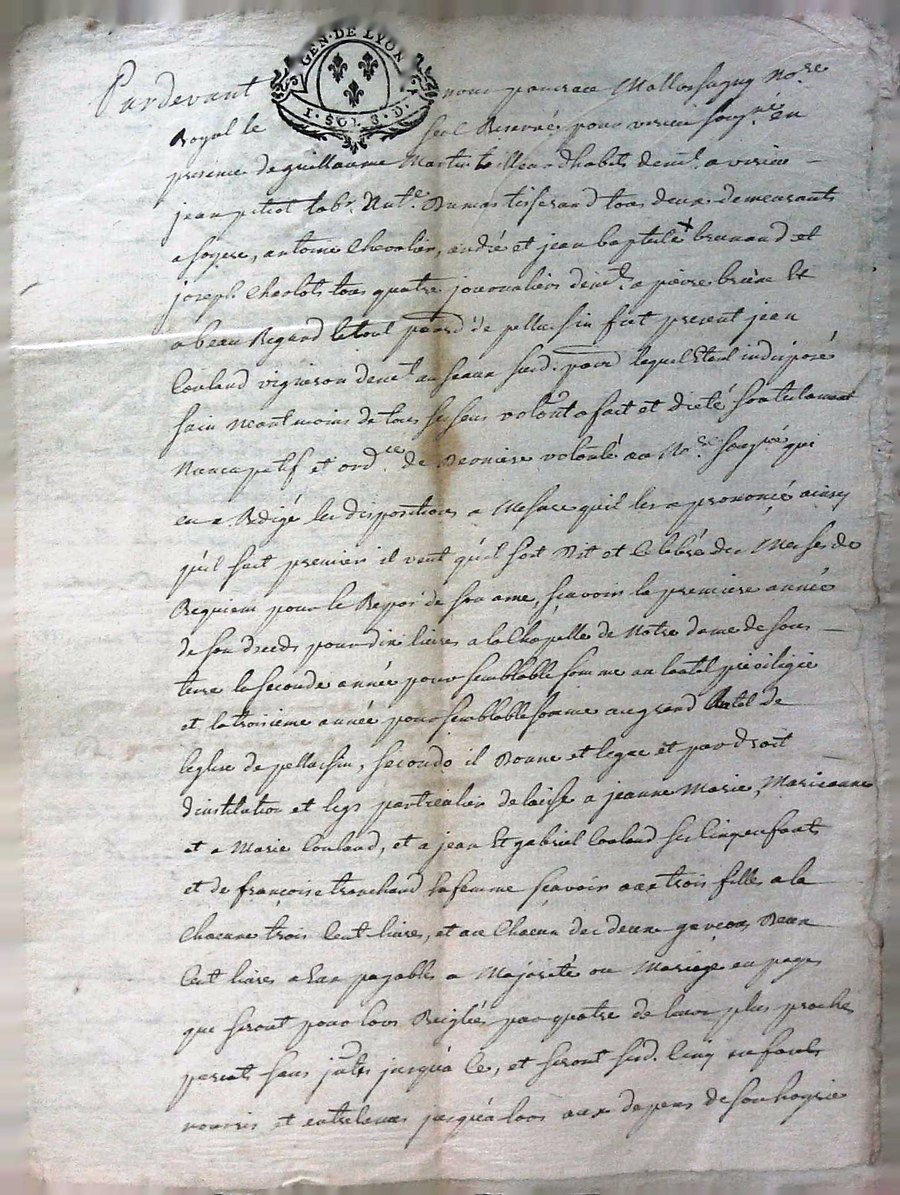 GEN. DE LYON
1. SOL 8. D.
Pardevant nous pancrace Mallassagny No.re
Royal le seul Reservé pour virieu soug.né en
presence de guillaume Martin tailleur d'habits dem.t a virieu
jean pitiot lab.r Ant.e Dumas tisserand tous deux demeurants
a soyere, antoine Chevalier, andré et jean baptiste brunand et
joseph Charlot tous quatre journaliers dem.t a pierre brune Et
a beau Regard le tout parr.se de pellussin fut present jean
Couland vigneron dem.t au seaux susd. parr.se lequel Etant indisposé
sain neantmoins de tous ses sens volont.t a fait et dicté son testament
Nuncupatif et ord.ce de derniere volonté au No.re soug.né qui
en a Redigé les dispositions a Mesure qu'il les a prononcé ainsy
qu'il suit premier il veut qu'il soit Dit et Celebré des Messes de
Requiem pour le Repos de son ame, sçavoir la premiere année
de son deceds pour dix livres a la Chapelle de Notre dame de sous
terre la seconde année pour semblable somme au lautel privilegié
et la troisieme année pour semblable somme au grand Autel de
l'eglise de pellussin, secondo il Donne et legue et par droit
d'institution et legs particulier delaisse a jeanne Marie, Marieanne
et a Marie Couland, et a jean Et gabriel Couland ses Cinq enfants
et de françoise tranchand sa femme sçavoir aux trois filles a la
Chacune trois Cent livres, et au Chacun des deux garçons Deux
Cent livres a Eux payables a Majorité ou Mariage en payes
que seront pour lors Reiglés par quatre de leurs plus proches
parents sans jnts jusqu'a Ce, et seront susd. Cinq enfants
nourris et entretenus jusqu'alors aux depens de son hoyrie